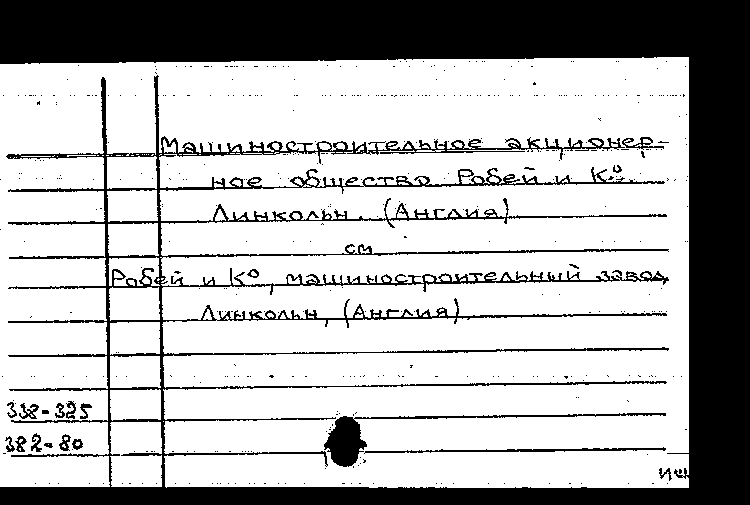 Машиностроительное акционер-
ное общество Робей и К⁰.
Линкольн. (Англия)
см
Робей и К⁰, машиностроительный завод,
Линкольн, (Англия).
338-325
382-80